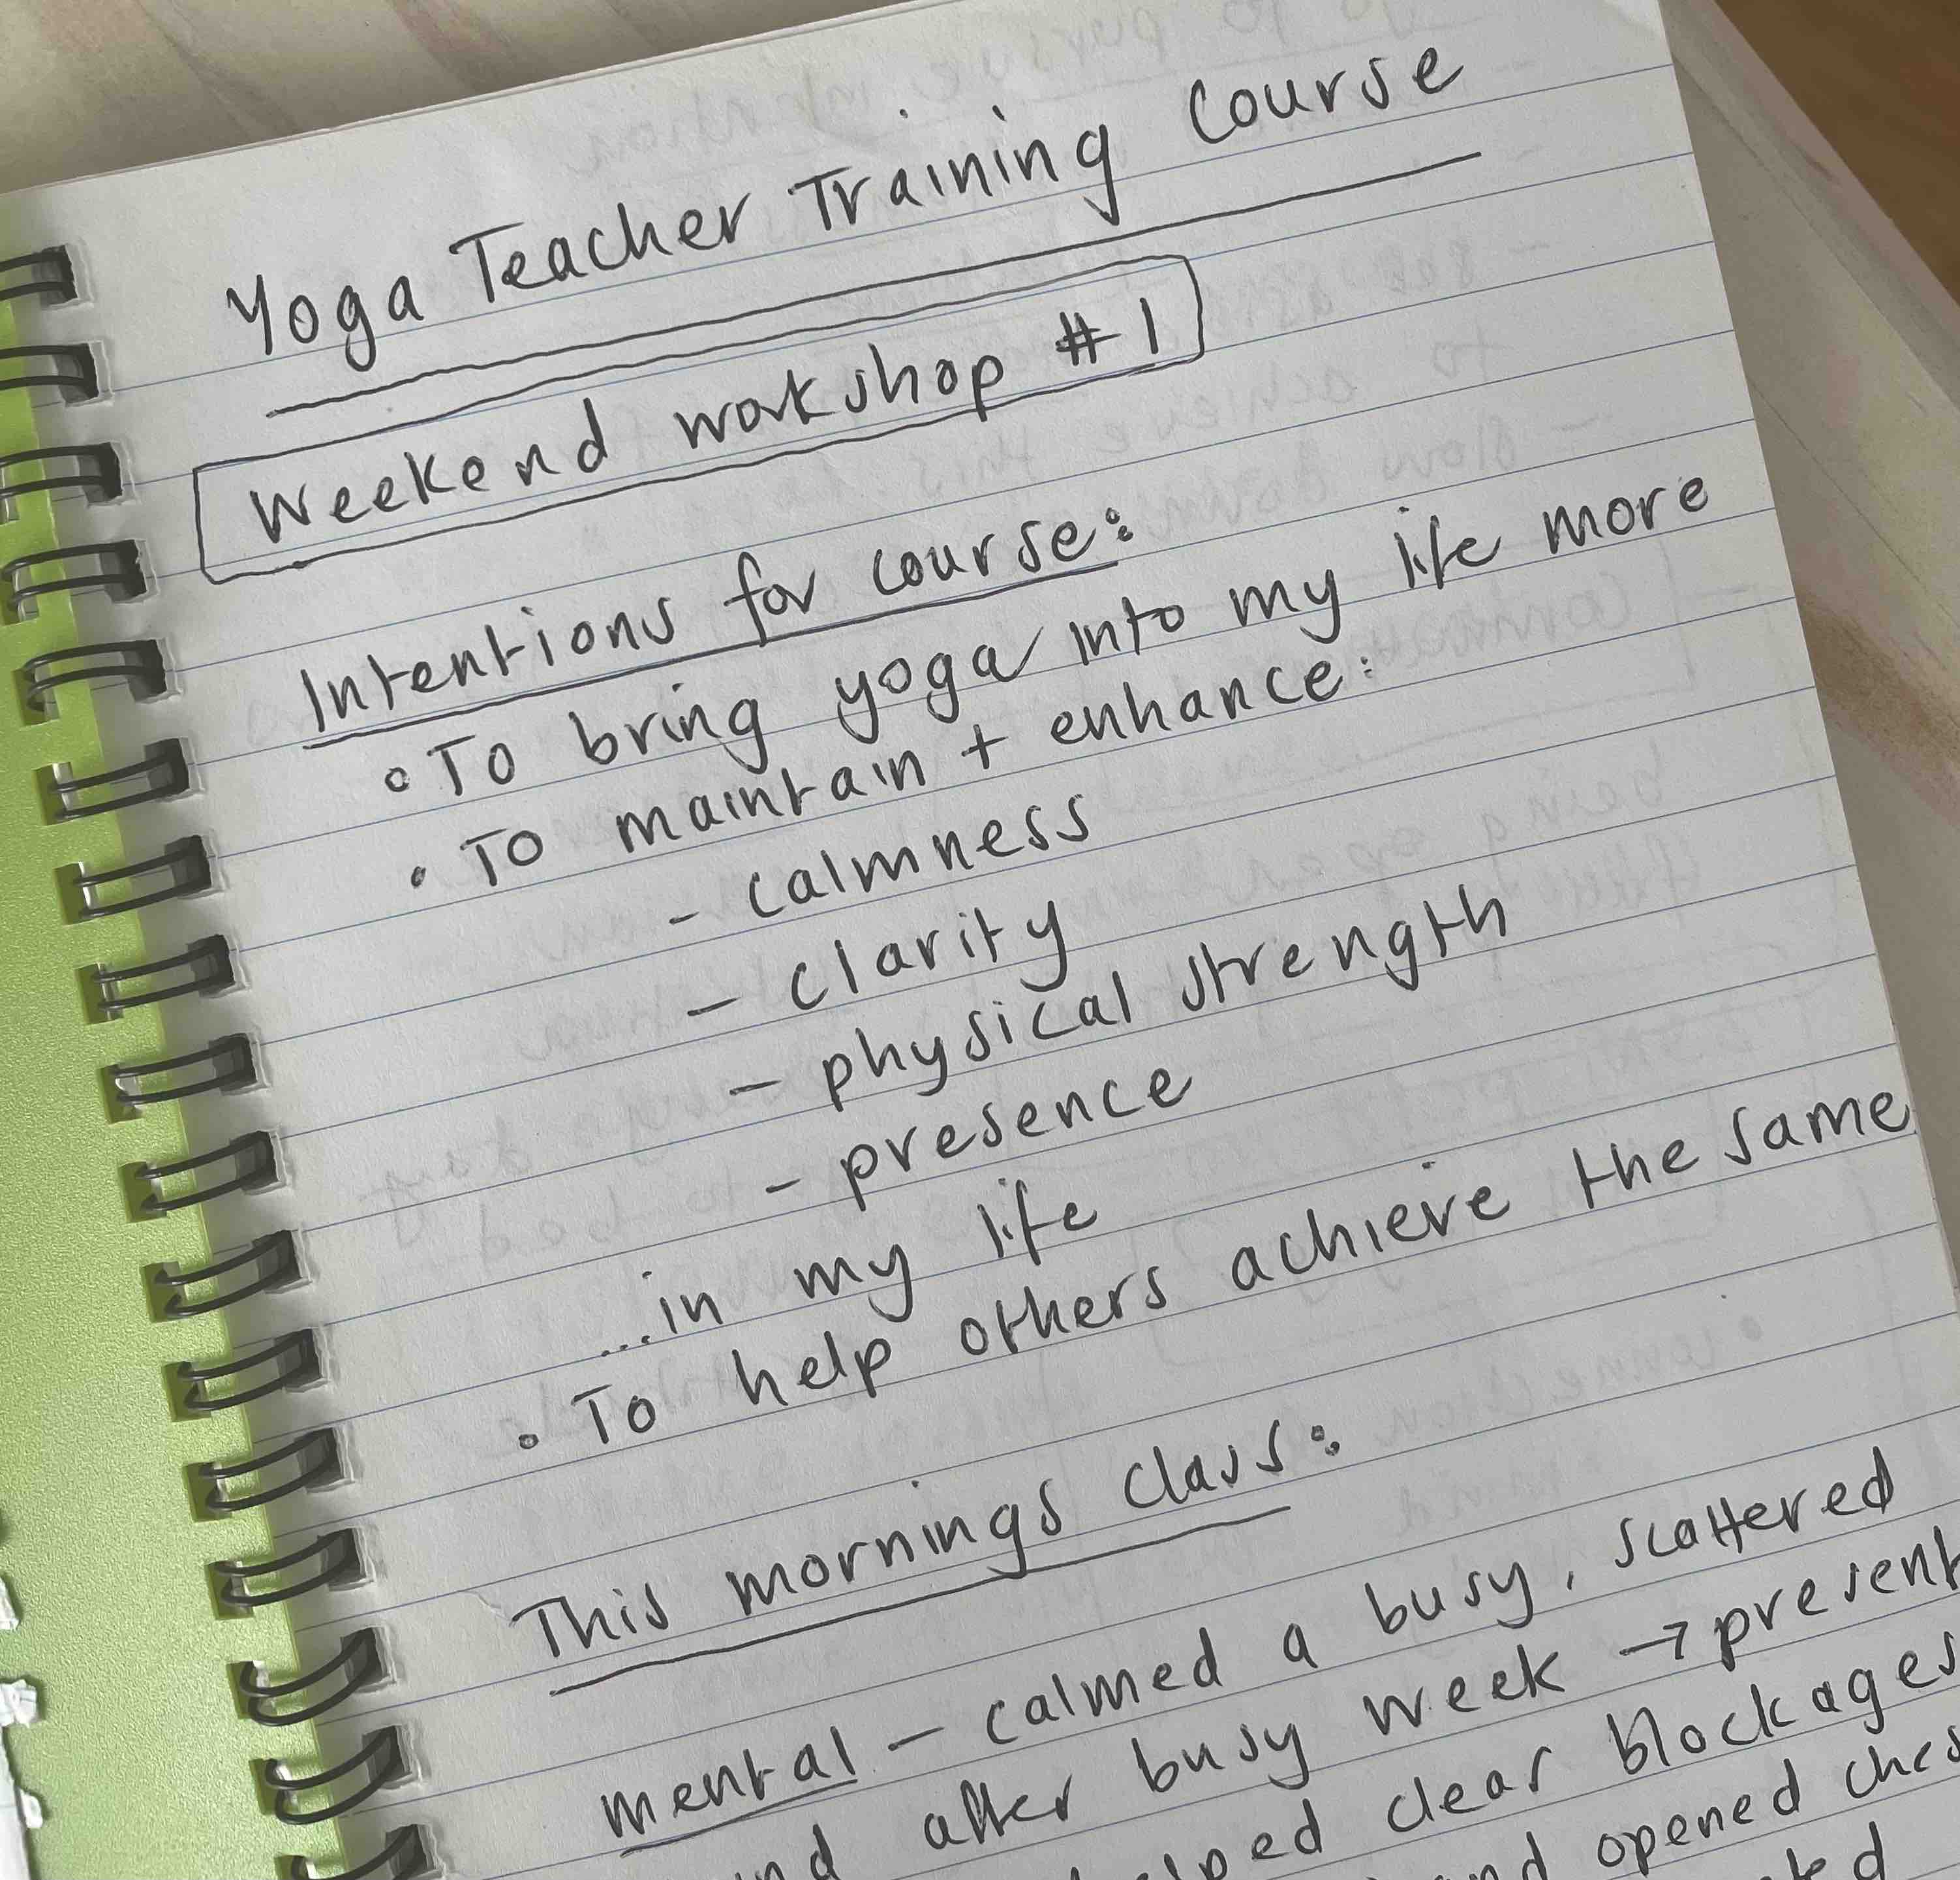 Yoga Teacher Training Course
Weekend workshop #1
Intentions for course:
• To bring yoga into my life more
• To maintain + enhance:
- calmness
- clarity
- physical strength
- presence
...in my life
• To help others achieve the same
This mornings class:
mental - calmed a busy, scattered
after busy week → present
clear blockages
opened